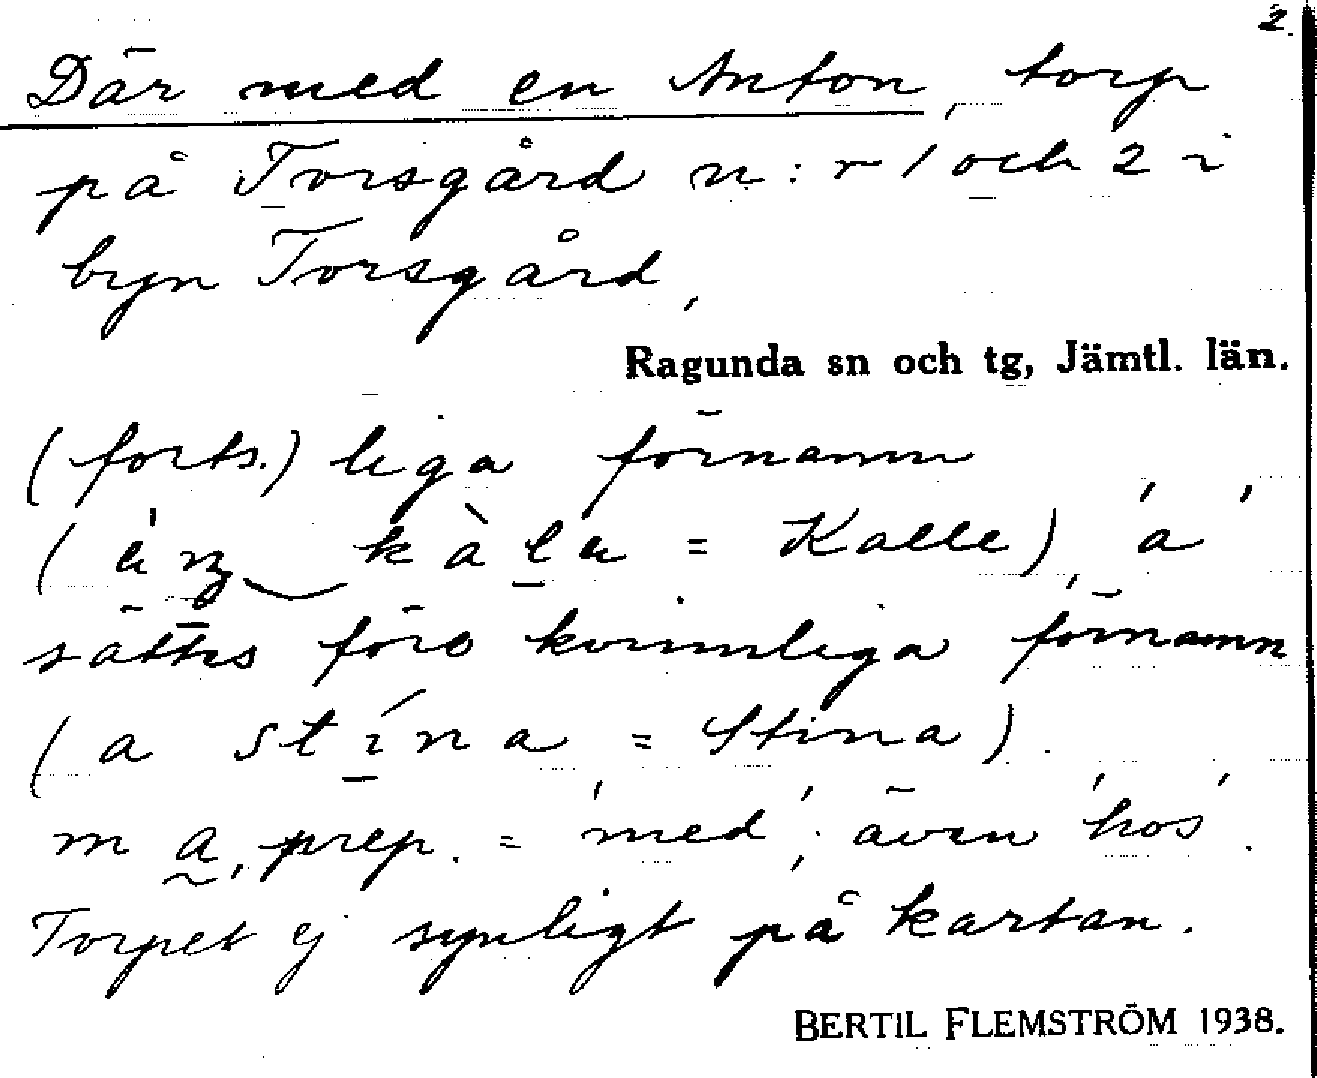 2.
Där med en Anton, torp
på Torsgård n:r 1 och 2 i
byn Torsgård,
Ragunda sn och tg, Jämtl. län.
(forts.) liga förnamn
= Kalle), 'a'
sättes före kvinnliga förnamn
(a stína = Stina).
m a, prep. = 'med', även 'hos'.
Torpet ej synligt på kartan.
BERTIL FLEMSTRÖM 1938.